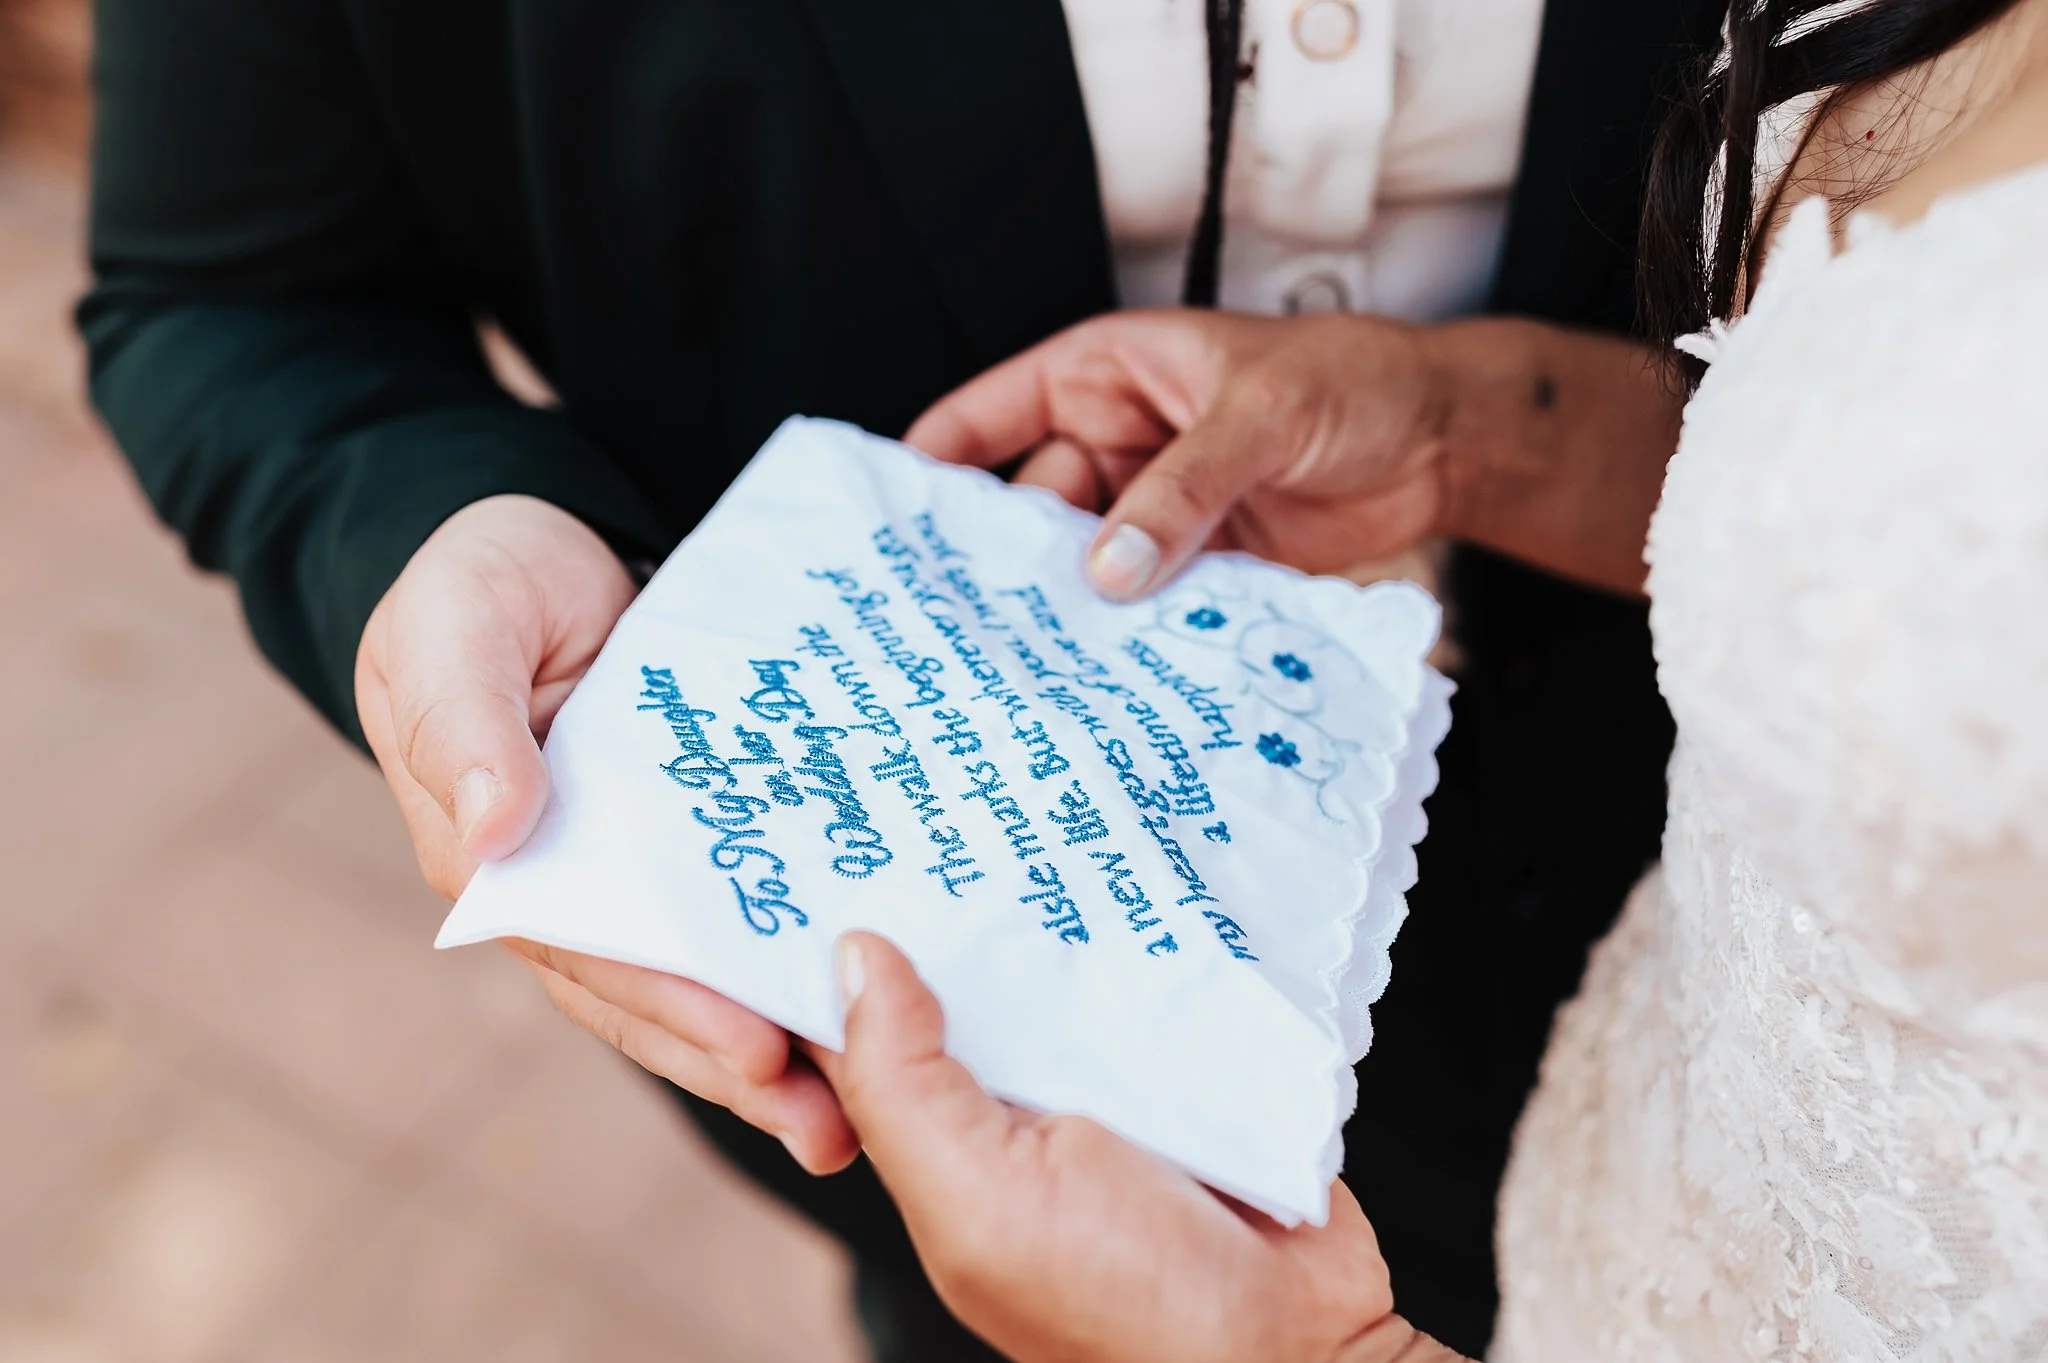 To My Daughter
on her
Wedding Day
The walk down the
aisle marks the beginning of
a new life. But wherever life
my heart goes with you. I wish you
a lifetime of love and
happiness